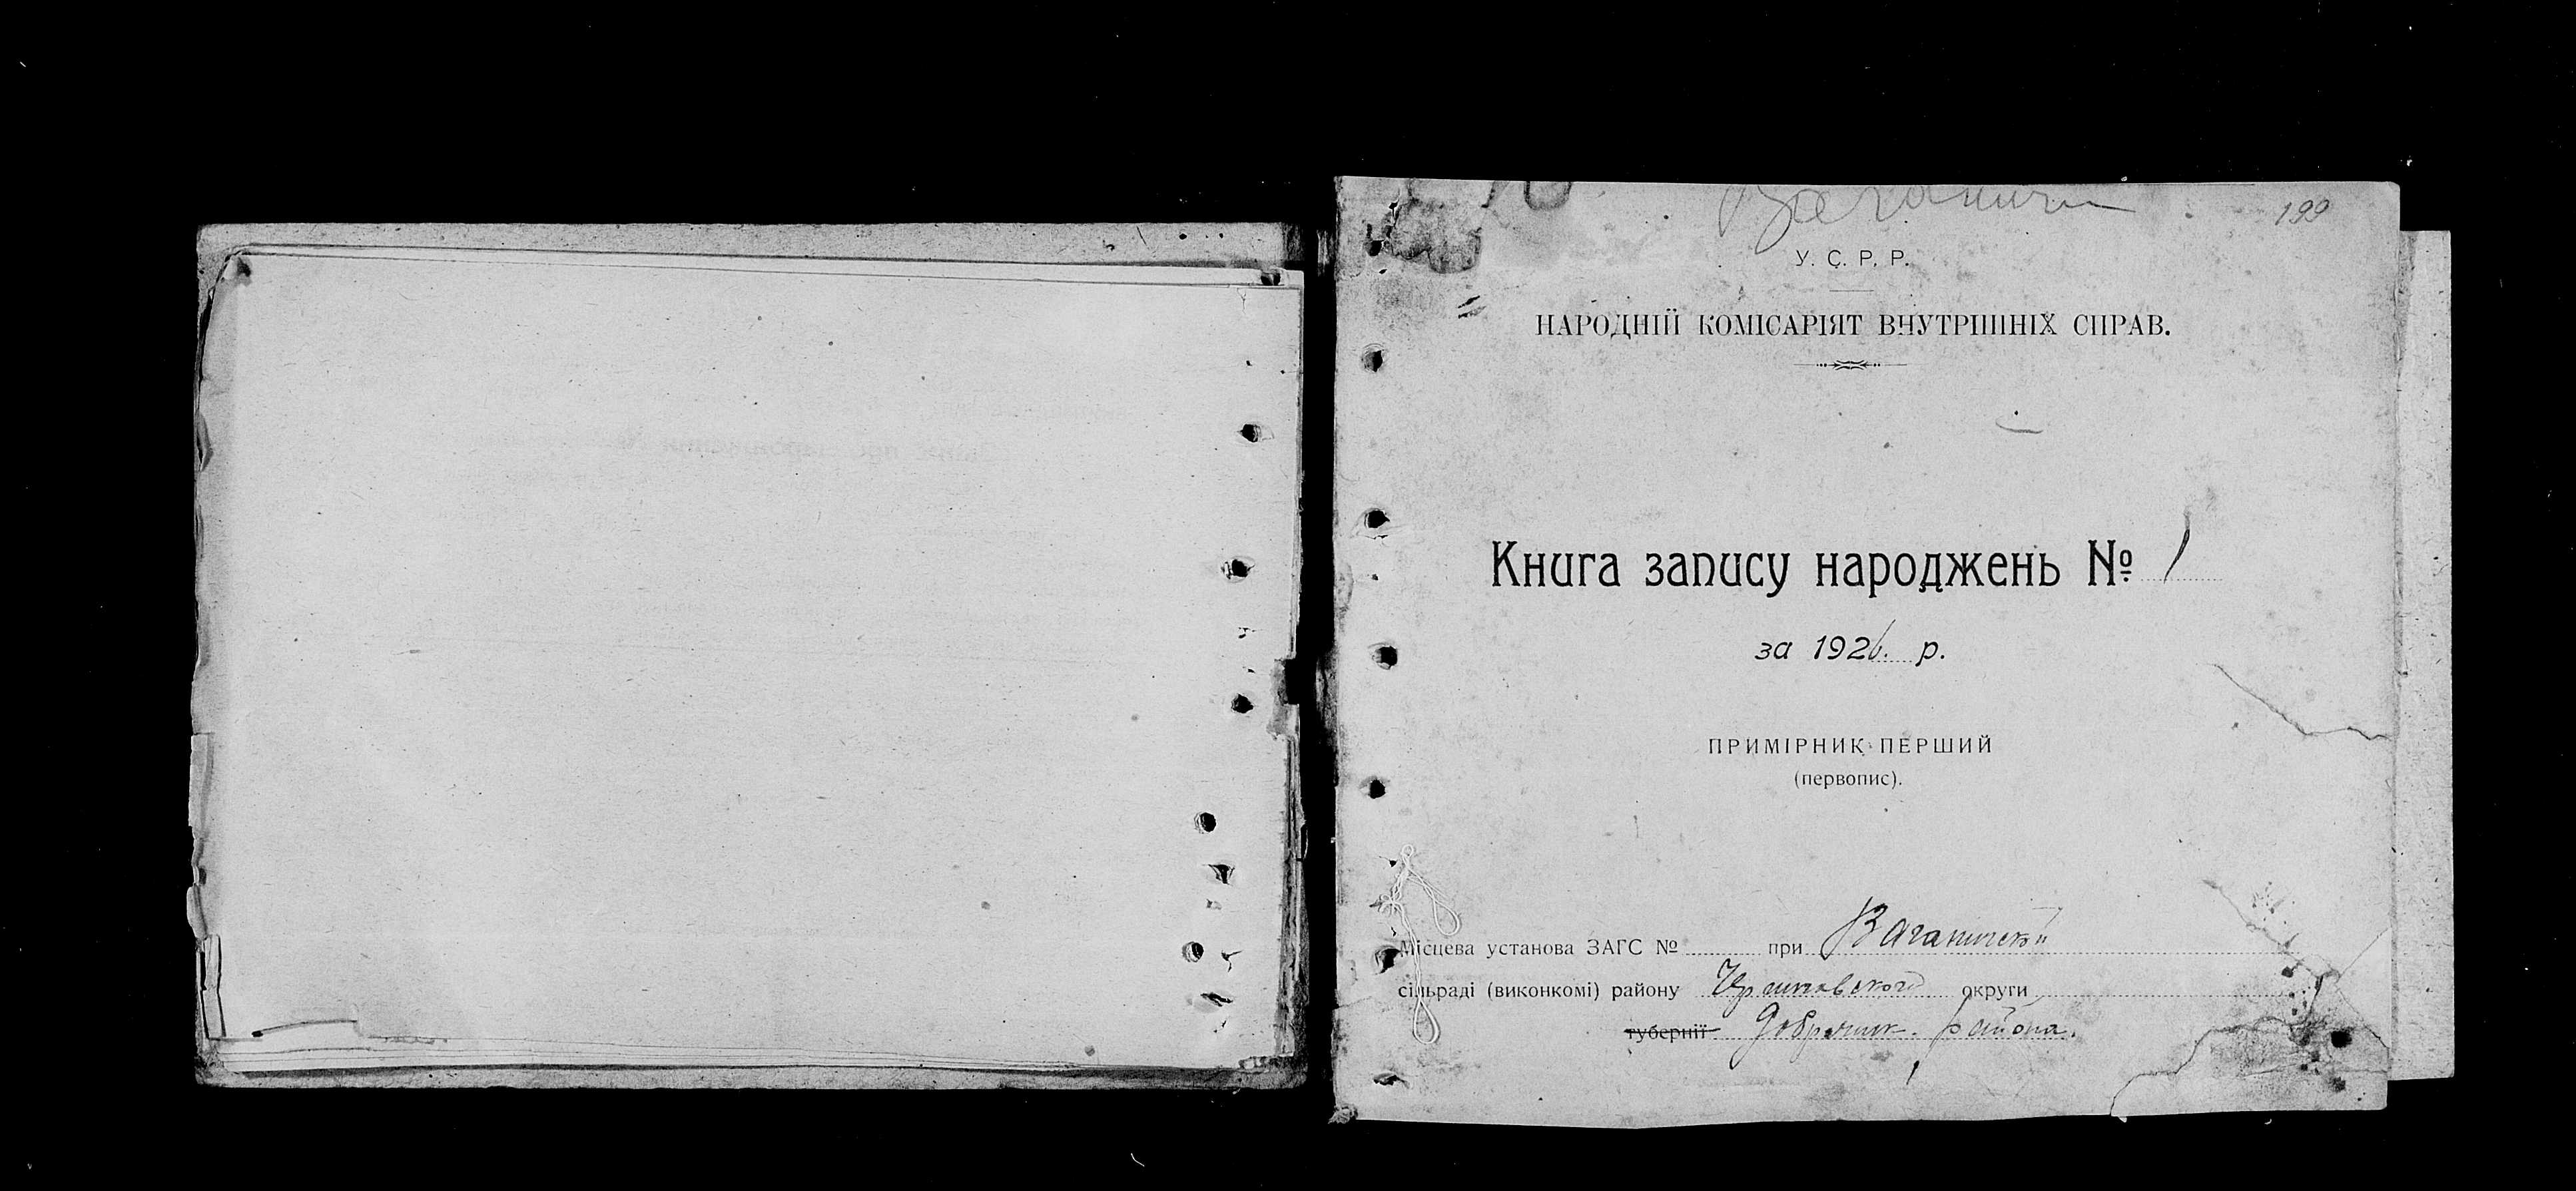 Ваганичи
199
У. С. Р. Р.
НАРОДНІЙ КОМІСАРІЯТ ВНУТРІШНІХ СПРАВ.
Книга запису народжень № 1
за 1926. р.
ПРИМІРНИК ПЕРШИЙ
(первопис).
Місцева установа ЗАГС № при Ваганичской
сільраді (виконкомі) району округи
губернії Добрянск. района.